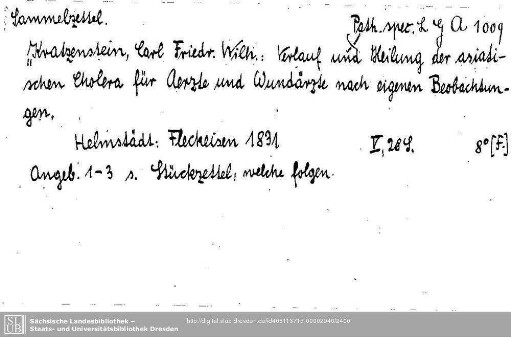 Sammelzettel.
Path. spec. L G A 1009
"Kratzenstein, Carl Friedr. Wilh.: Verlauf und Heilung der asiati-
schen Cholera für Aerzte und Wundärzte nach eigenen Beobachtun-
gen.
Helmstädt: Fleckeisen 1831 V, 28 S. 8° [F.]
Angeb. 1-3 s. Stückzettel, welche folgen.
SLUB
Sächsische Landesbibliothek –
Staats- und Universitätsbibliothek Dresden